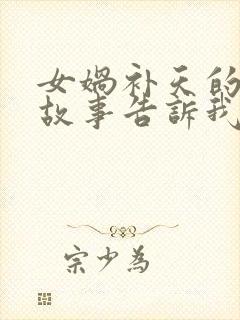 女娲补天的
故事告訴我
宗少為